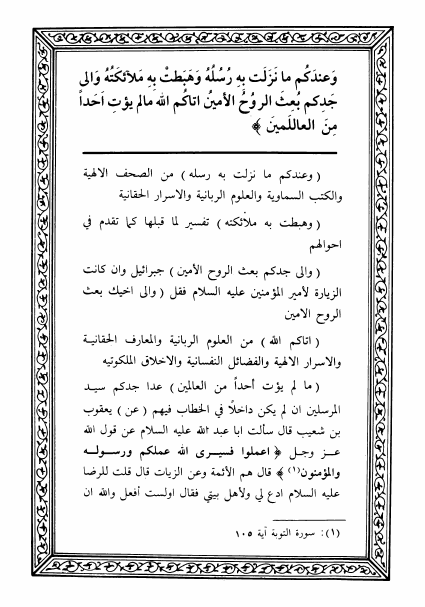 وَعندَكُم ما نَزَلَت بِه رُسُلُهُ وَهَبَطتْ بِهِ مَلآئكَتُهُ وَالى
جَدِكم بُعِثَ الروُحُ الأمينُ اتاكُم الله مالم يؤتِ اَحَداً
مِنَ العاللَمينَ ﴾
( وعندكم ما نزلت به رسله ) من الصحف الالهية
والكتب السماوية والعلوم الربانية والاسرار الحقانية
( وهبطت به ملآئكته ) تفسير لما قبلها كما تقدم في
احوالهم
( والى جدكم بعث الروح الأمين ) جبرائيل وان كانت
الزيارة لأمير المؤمنين عليه السلام فقل ( والى اخيك بعث
الروح الامين
( اتاكم الله ) من العلوم الربانية والمعارف الحقانيـة
والاسرار الالهية والفضائل النفسانية والاخلاق الملكوتيه
( ما لم يؤت أحداً من العالمين ) عدا جدكم سيـد
المرسلين ان لم يكن داخلًا في الخطاب فيهم ( عن ) يعقوب
بن شعيب قال سألت ابا عبد الله عليه السلام عن قول الله
عـز وجـل ﴿ اعملوا فسيـرى الله عملكم ورسولـه
والمؤمنون(١) ﴾ قال هم الأئمة وعن الزيات قال قلت للرضا
عليه السلام ادع لي ولأهل بيتي فقال اولست أفعل والله ان
(١): سورة التوبة آية ١٠٥